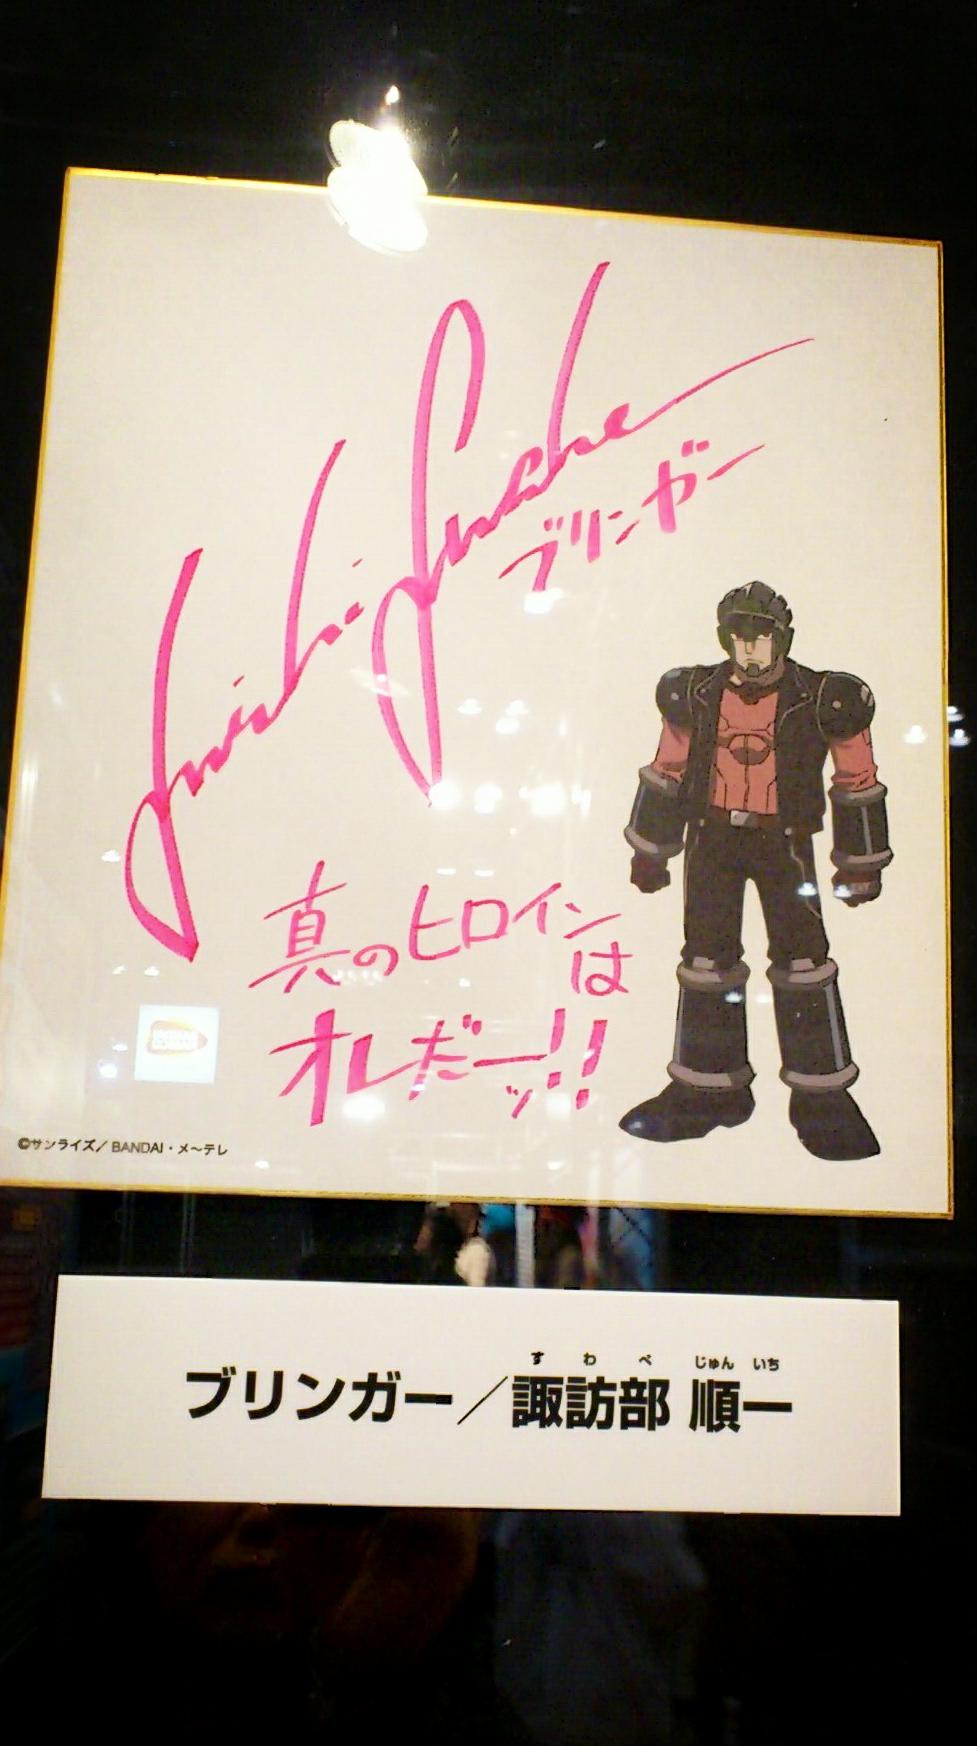 Junichi Suwabe
ブリンガー
真のヒロインは
オレだーッ!!
©サンライズ/BANDAI・メ〜テレ
すわべ じゅんいち
ブリンガー/諏訪部 順一